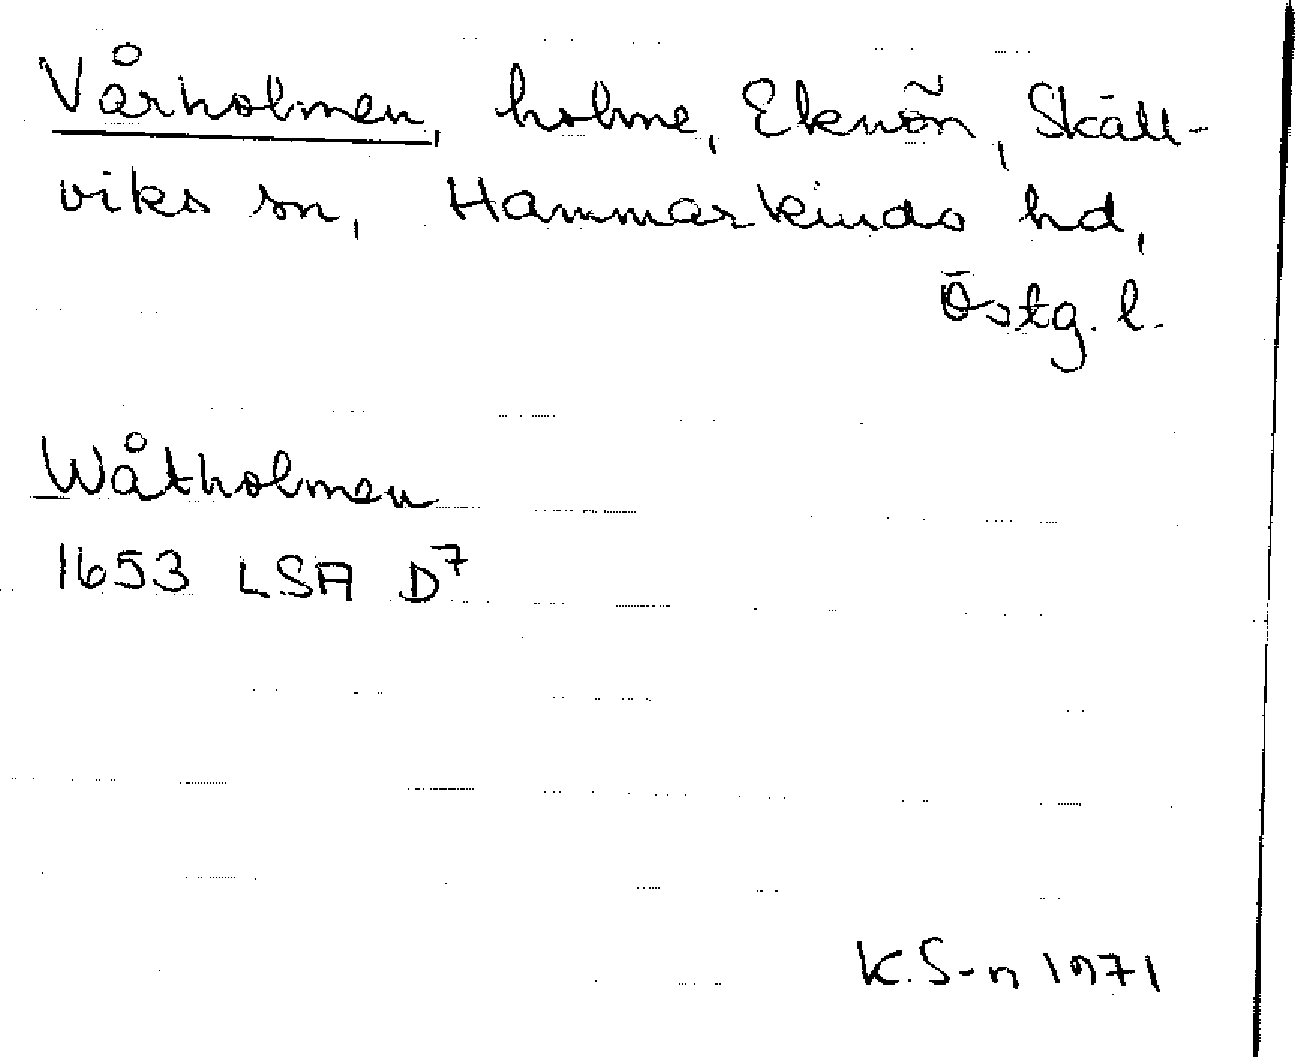 Vårholmen, holme, Eknön, Skäll-
viks sn, Hammarkinds hd,
Östg. l.
Wåtholmen
1653 LSA D7
K.S-n 1971